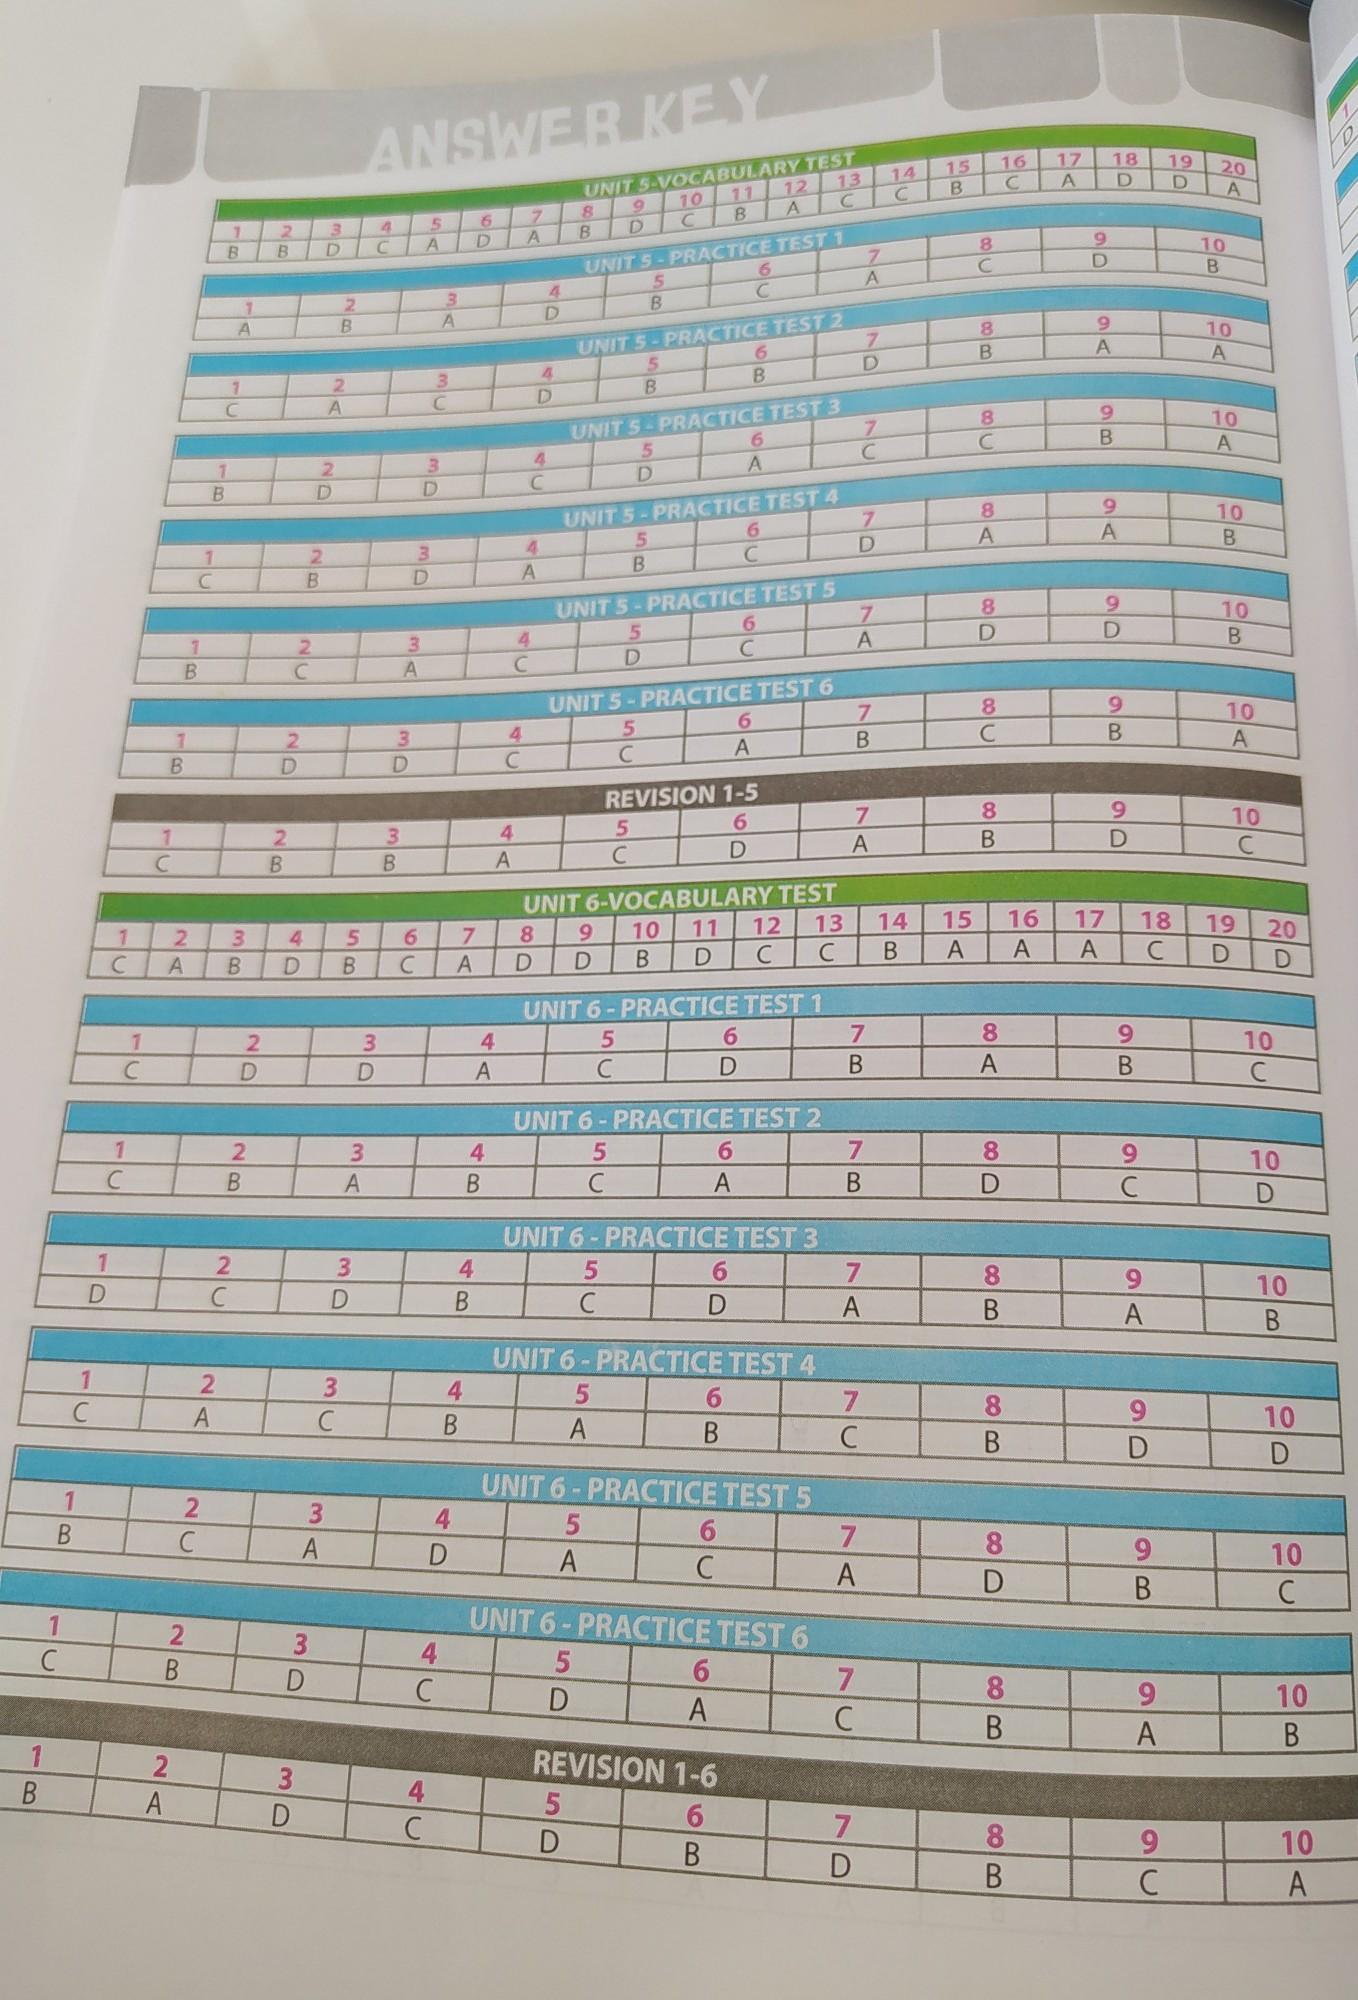 ANSWER KEY
UNIT 5-VOCABULARY TEST
1 2 3 4 5 6 7 8 9 10 11 12 13 14 15 16 17 18 19 20
B B D C A D A B D C B A C C B C A D D A
UNIT 5 - PRACTICE TEST 1
1 2 3 4 5 6 7 8 9 10
A B A D B C A C D B
UNIT 5 - PRACTICE TEST 2
1 2 3 4 5 6 7 8 9 10
C A C D B B D B A A
UNIT 5 - PRACTICE TEST 3
1 2 3 4 5 6 7 8 9 10
B D D C D A C C B A
UNIT 5 - PRACTICE TEST 4
1 2 3 4 5 6 7 8 9 10
C B D A B C D A A B
UNIT 5 - PRACTICE TEST 5
1 2 3 4 5 6 7 8 9 10
B C A C D C A D D B
UNIT 5 - PRACTICE TEST 6
1 2 3 4 5 6 7 8 9 10
B D D C C A B C B A
REVISION 1-5
1 2 3 4 5 6 7 8 9 10
C B B A C D A B D C
UNIT 6-VOCABULARY TEST
1 2 3 4 5 6 7 8 9 10 11 12 13 14 15 16 17 18 19 20
C A B D B C A D D B D C C B A A A C D D
UNIT 6 - PRACTICE TEST 1
1 2 3 4 5 6 7 8 9 10
C D D A C D B A B C
UNIT 6 - PRACTICE TEST 2
1 2 3 4 5 6 7 8 9 10
C B A B C A B D C D
UNIT 6 - PRACTICE TEST 3
1 2 3 4 5 6 7 8 9 10
D C D B C D A B A B
UNIT 6 - PRACTICE TEST 4
1 2 3 4 5 6 7 8 9 10
C A C B A B C B D D
UNIT 6 - PRACTICE TEST 5
1 2 3 4 5 6 7 8 9 10
B C A D A C A D B C
UNIT 6 - PRACTICE TEST 6
1 2 3 4 5 6 7 8 9 10
C B D C D A C B A B
REVISION 1-6
1 2 3 4 5 6 7 8 9 10
B A D C D B D B C A
1
D